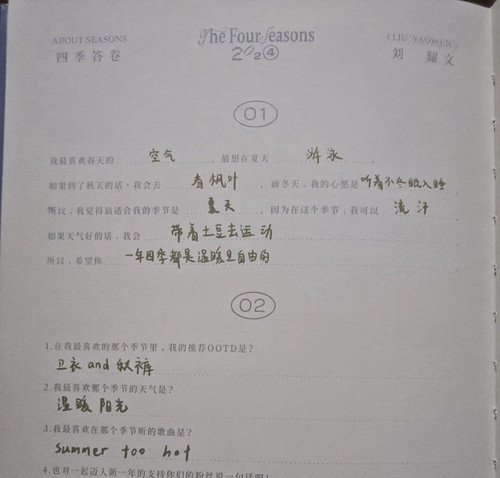 ABOUT SEASONS The Four Seasons ( LIU YAOWEN )
四季答卷 2024 刘 耀文
01
我最喜欢春天的: 空气 ,最想在夏天 游泳
如果到了秋天的话,我会去 看枫叶 ,而冬天,我的心愿是 听着不冬眠入睡
所以,我觉得最适合我的季节是 夏天 ,因为在这个季节,我可以 流汗
如果天气好的话,我会 带着土豆去运动
所以,希望你 一年四季都是温暖且自由的
02
1.在我最喜欢的那个季节里,我的推荐OOTD是?
卫衣 and 裤
2.我最喜欢那个季节的天气是?
温暖 阳光
3.我最喜欢在那个季节听的歌曲是?
summer too hot
4.也对一起迈入新一年的支持你们的粉丝说一句话吧!